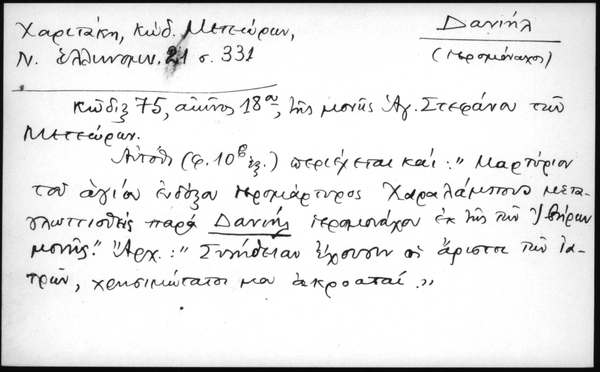 Χαριτάκη, Κώδ. Μετεώρων,
Ν. Ἑλληνομν. 21 σ. 331
Δανιήλ
(ἱερομόναχος)
Κῶδιξ 75, αἰῶνος 18ου, τῆς μονῆς Ἁγ. Στεφάνου τῶν
Μετεώρων.
Αὐτόθι (φ. 10β ἑξ.) περιέχεται καί: "Μαρτύριον
τοῦ ἁγίου ἐνδόξου ἱερομάρτυρος Χαραλάμπους μετα-
γλωττισθὲν παρὰ Δανιήλ ἱερομονάχου ἐκ τῆς τῶν Ἰβήρων
μονῆς." Ἀρχ.: "Συνήθειαν ἔχουσιν οἱ ἄριστοι τῶν ἰα-
τρῶν, χρησιμώτατοι μου ἀκροαταί."